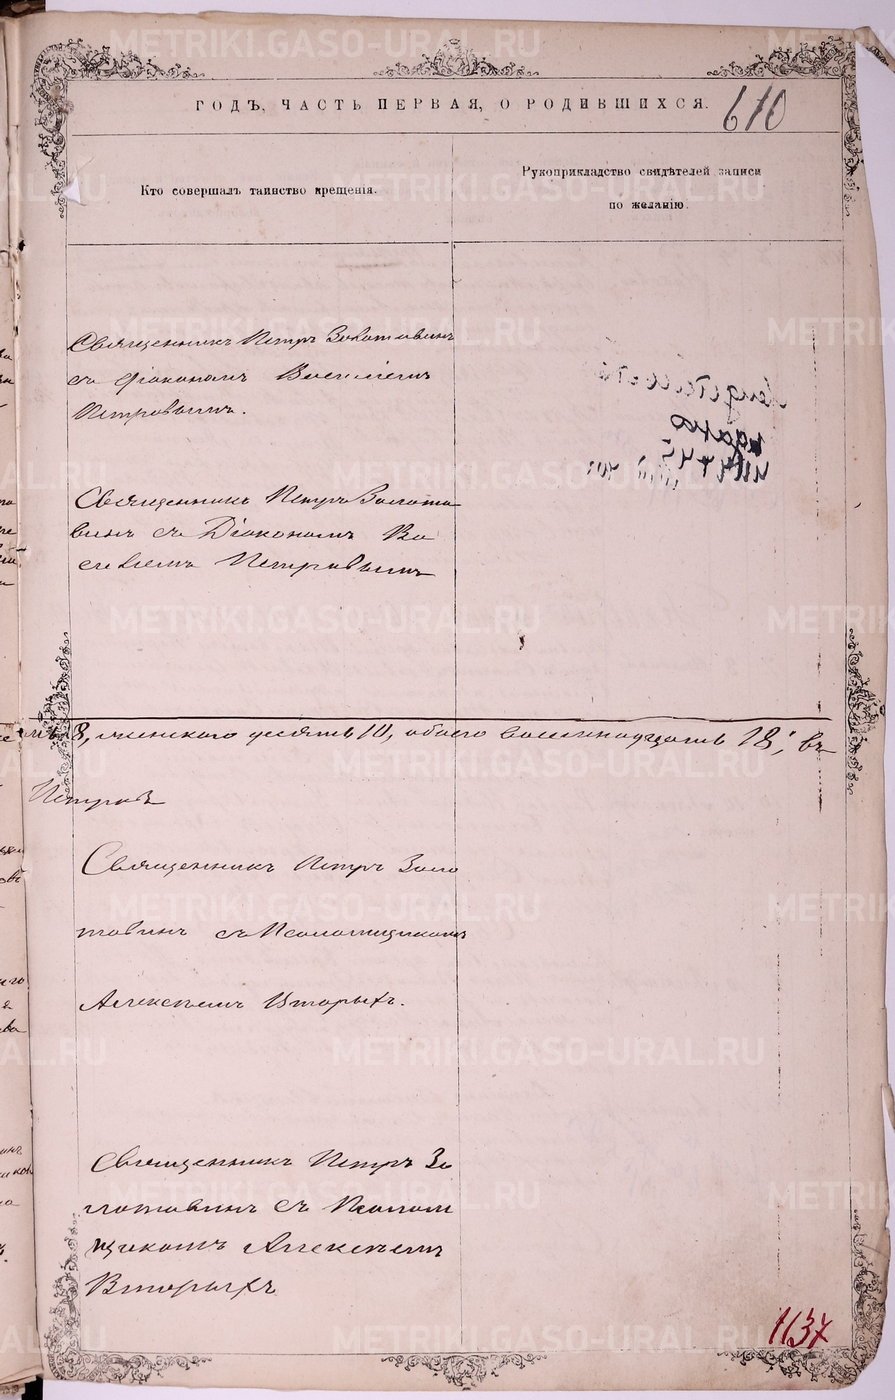 METRIKI.GASO-URAL.RU
ГОДЪ, ЧАСТЬ ПЕРВАЯ, О РОДИВШИХСЯ.
610
Кто совершалъ таинство крещенія.
Рукоприкладство свидѣтелей записи
по желанію.
Священникъ Петръ Золотавинъ
съ Діакономъ Василіемъ
Петровымъ.
Священникъ Петръ Золота
винъ съ Діакономъ Ва
силіемъ Петровымъ
8, женскаго десять 10, обоего восемнадцать 18; въ
Петровъ
Священникъ Петръ Золо
тавинъ съ Псаломщикомъ
Алексѣемъ Вторыхъ.
Священникъ Петръ Зо
лотавинъ съ Псалом
щикомъ Алексѣемъ
Вторыхъ
1137